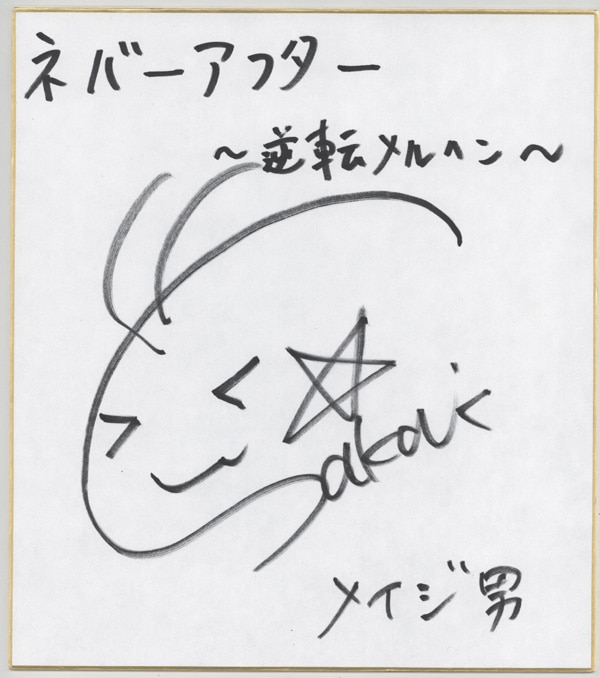 ネバーアフター
～逆転メルヘン～
Sakai
メイジ男